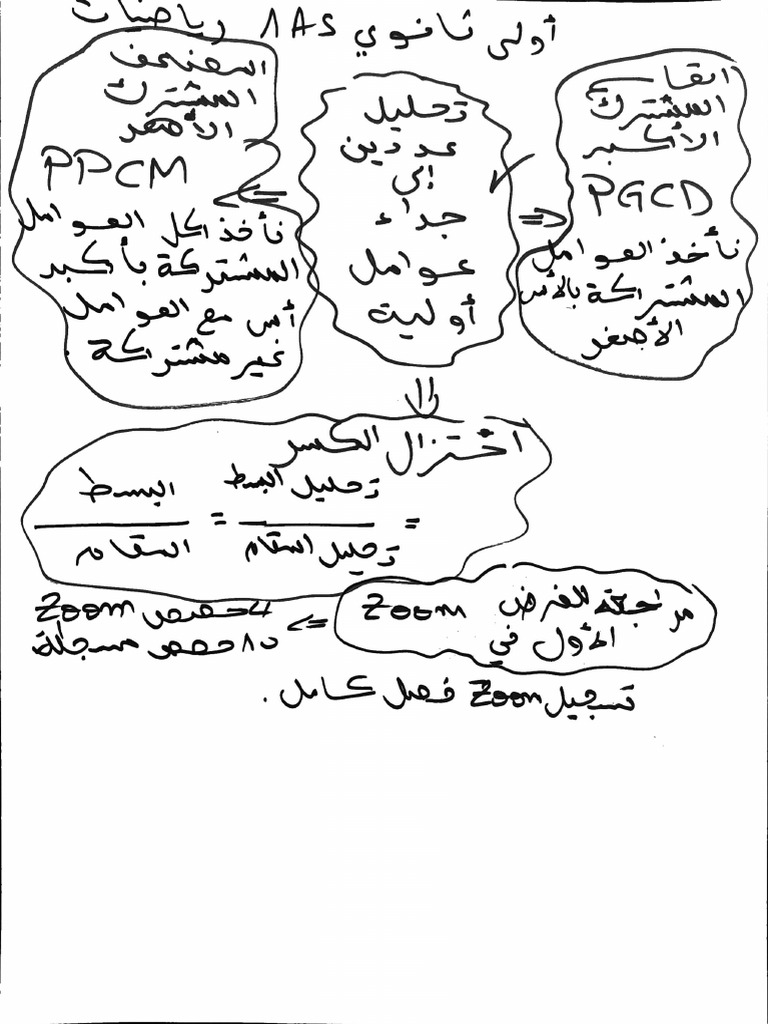 أولى ثانوي 1AS رياضيات
القاسم
المشترك
الأكبر
PGCD
نأخذ العوامل
المشتركة بالأس
الأصغر
تحليل
عددين
إلى
جداء
عوامل
أولية
المضاعف
المشترك
الأصغر
PPCM
نأخذ كل العوامل
المشتركة بأكبر
أس مع العوامل
غير مشتركة.
⇒
⇐
⇓
اختزال الكسر
البسط / المقام = تحليل البسط / تحليل المقام =
مراجعة للفرض
الأول في Zoom
<= 4 حصص Zoom
حصص مسجلة
تسجيل Zoom فصل كامل.